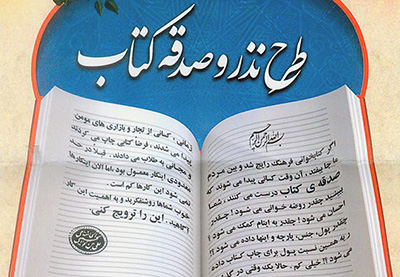 طرح نذر و صدقه کتاب
بسم الله الرحمن الرحیم
اگر کتابخوانی فرهنگ رایج شد و بین مردم
جا بیفتد، آن وقت کسانی پیدا می شوند که
صدقه ی کتاب درست می کنند، شما
ببینید چقدر روضه خوانی می شود! چقدر
احسان می شود! چقدر به ایتام کمک می شود؟
چقدر پول جنس، پارچه و اینها داده می شود؟!
به همین نسبت پول برای چاپ کتاب داده
می شود؟! خیلی کم. حالا یک وقتی در گذ
زمانی، کسانی از تجار و بازاری های مومن
پیدا می شدند، فرضا کتابی چاپ می کردند
و مجانی به طلاب می دادند. قبلاً در حد
معدودی اینکارها معمول بود، اما الان اینکارها
نمی شود. این کارها کم است.
خوب شماها روشنفکرید و به اهمیت این کار
آگاهید. این را ترویج کنید.